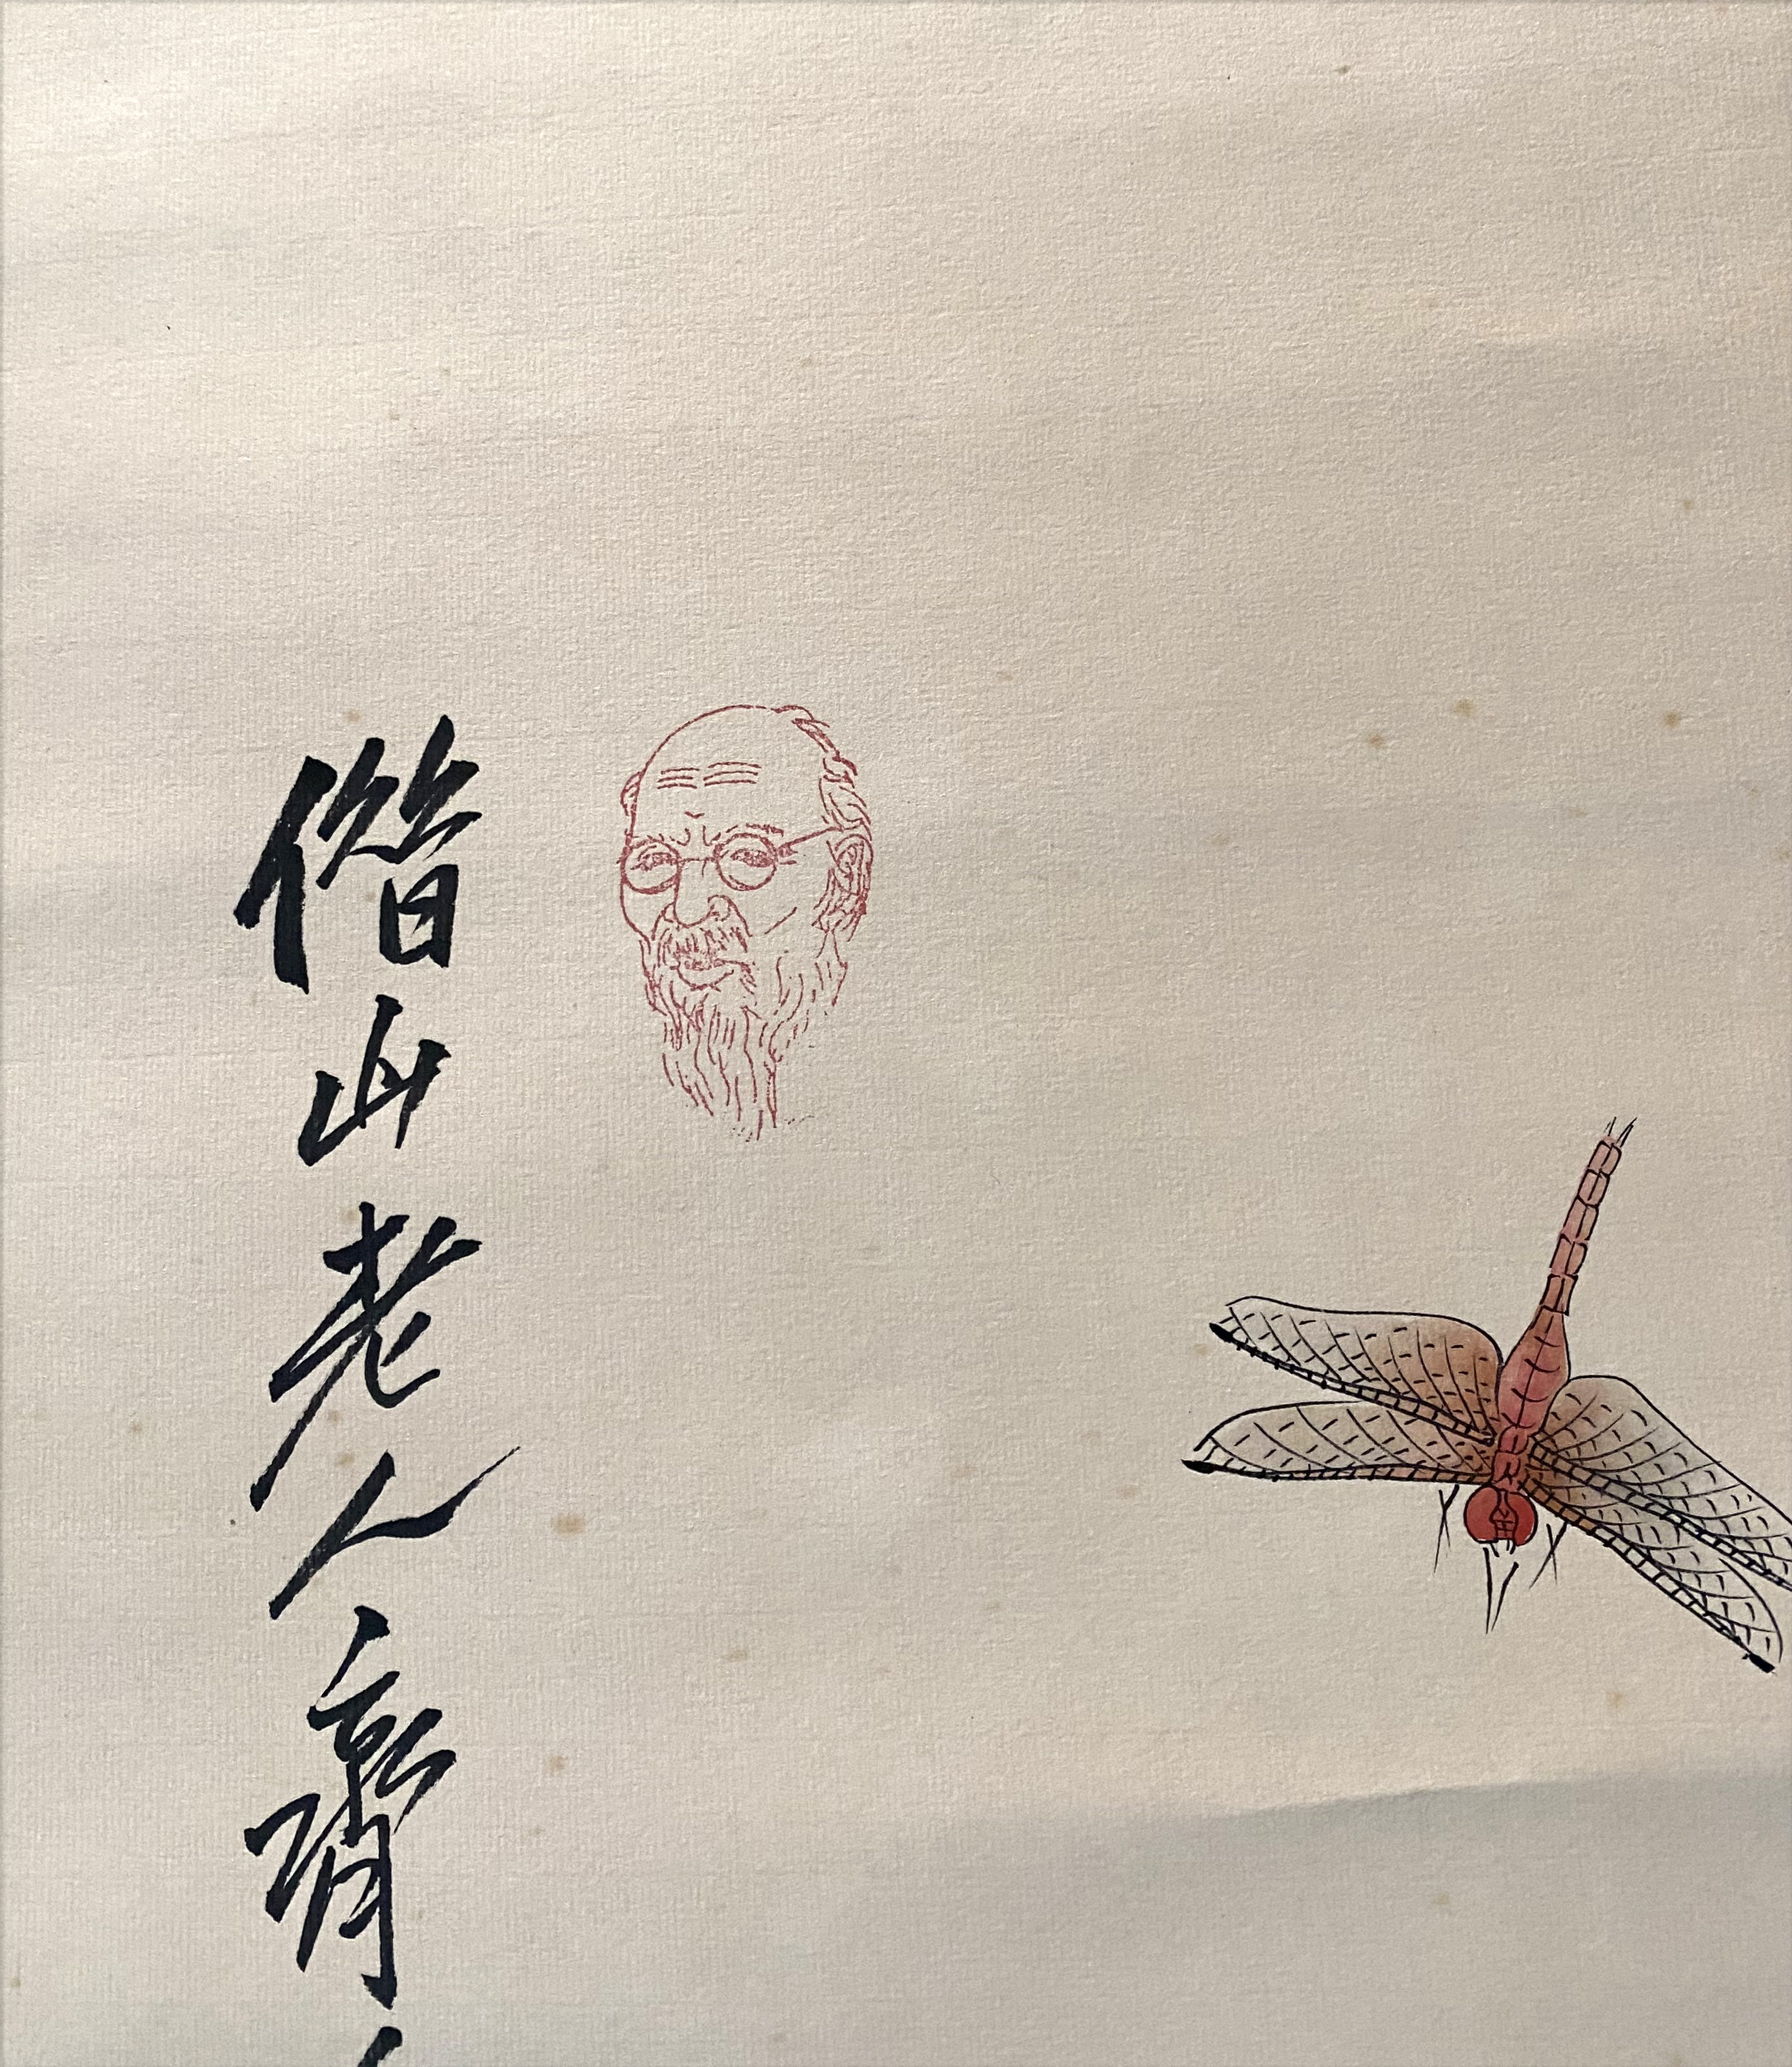 借山老人齊